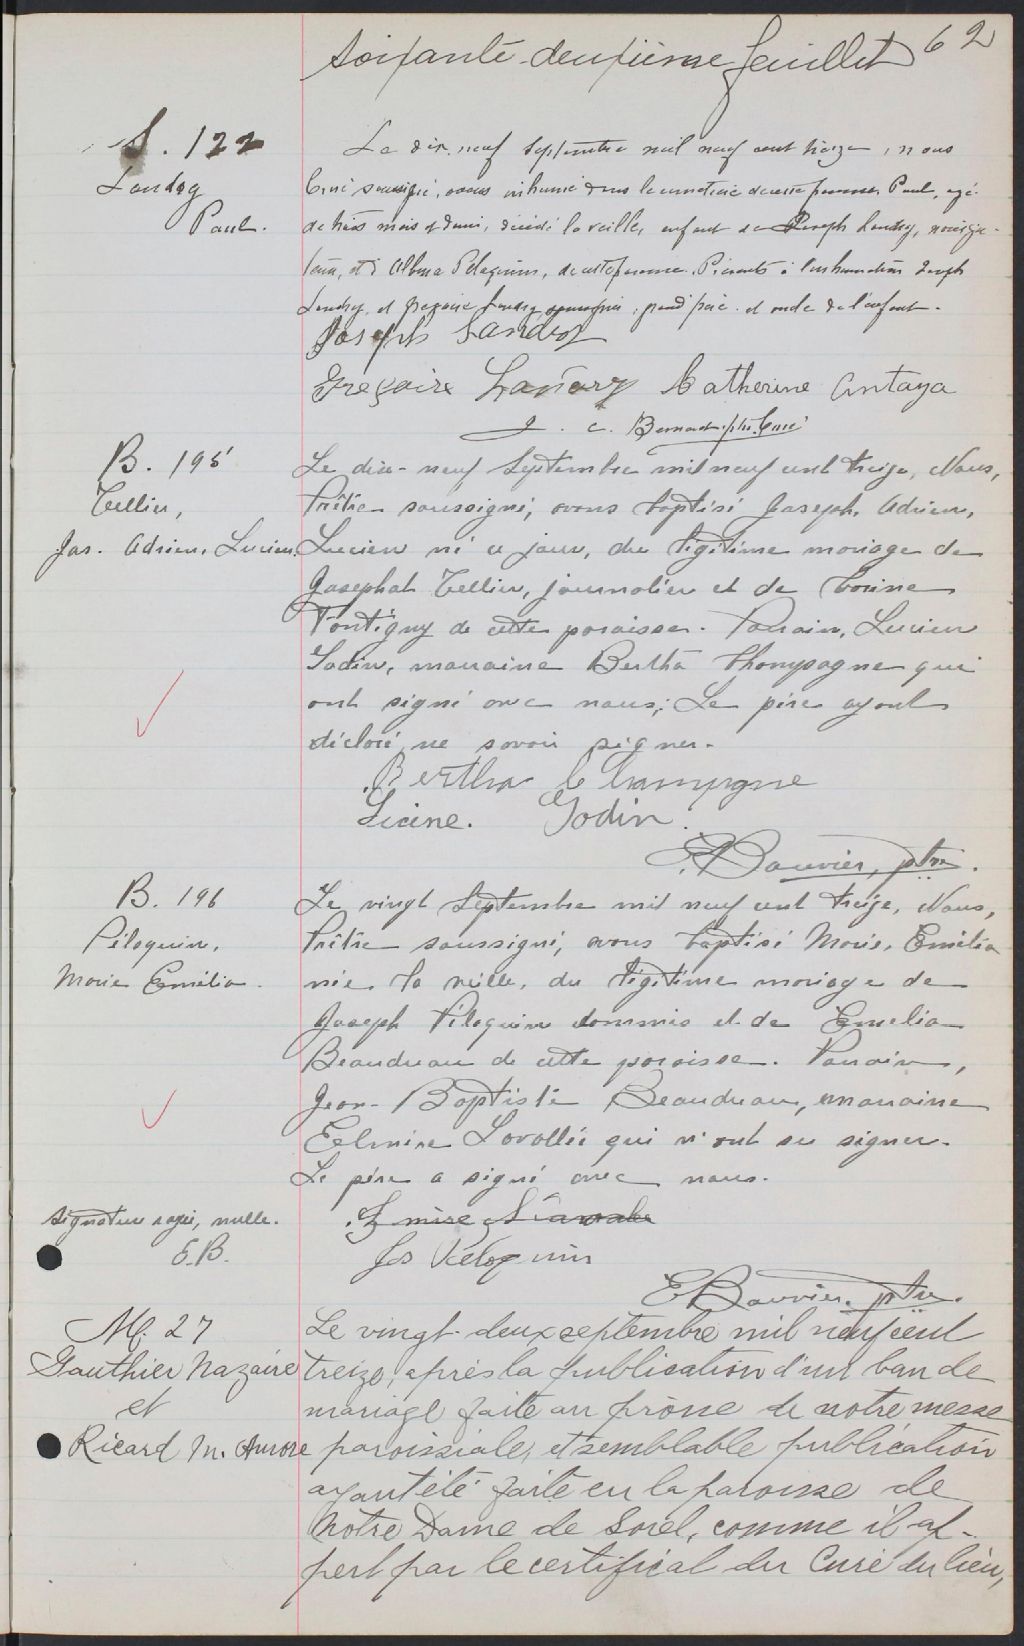 Soixante-deuxième feuillet 62
S. 122
Landry
Paul.
Le dix-neuf septembre mil neuf cent treize, nous
Curé soussigné, avons inhumé dans le cimetière de cette paroisse Paul, agé
de trois mois et demi, décédé la veille, enfant de Joseph Landry, naviga-
teur, et d'Albina Péloquin, de cette paroisse. Présents à l'inhumation Joseph
Landry, et Grégoire Landry soussignés, grand père et oncle de l'enfant.
Joseph Landry
Gregoire Landry Catherine Antaya
J. C. Bernard, ptre. Curé
B. 195
Tellier,
Jos. Adrien, Lucien.
Le dix-neuf Septembre mil neuf cent treize, Nous,
Prêtre soussigné, avons baptisé Joseph, Adrien,
Lucien né ce jour, du légitime mariage de
Josephat Tellier, journalier et de Corinne
Pontigny de cette paroisse. Parrain, Lucien
Godin, marraine Bertha Champagne qui
ont signé avec nous; Le père ayant
déclaré ne savoir signer.
Bertha Champagne
Lucine. Godin.
E. Bouvier, ptre.
B. 196
Péloquin,
Marie Emélia.
Le vingt Septembre mil neuf cent treize, Nous,
Prêtre soussigné, avons baptisé Marie, Emélia
née la veille, du légitime mariage de
Joseph Péloquin commis et de Emelia
Beaudreau de cette paroisse. Parrain,
Jean-Baptiste Beaudreau, marraine
Elmire Lavallée qui n'ont su signer.
Le père a signé avec nous.
Signature rayée, nulle.
E.B.
Jos Péloquin
E. Bouvier, ptre.
M. 27
Gauthier Nazaire
et
Ricard M. Aurore
Le vingt-deux septembre mil neuf cent
treize, après la publication d'un ban de
mariage faite au prône de notre messe
paroissiale, et semblable publication
ayant été faite en la paroisse de
Notre Dame de Sorel, comme il ap-
pert par le certificat du Curé du lieu,